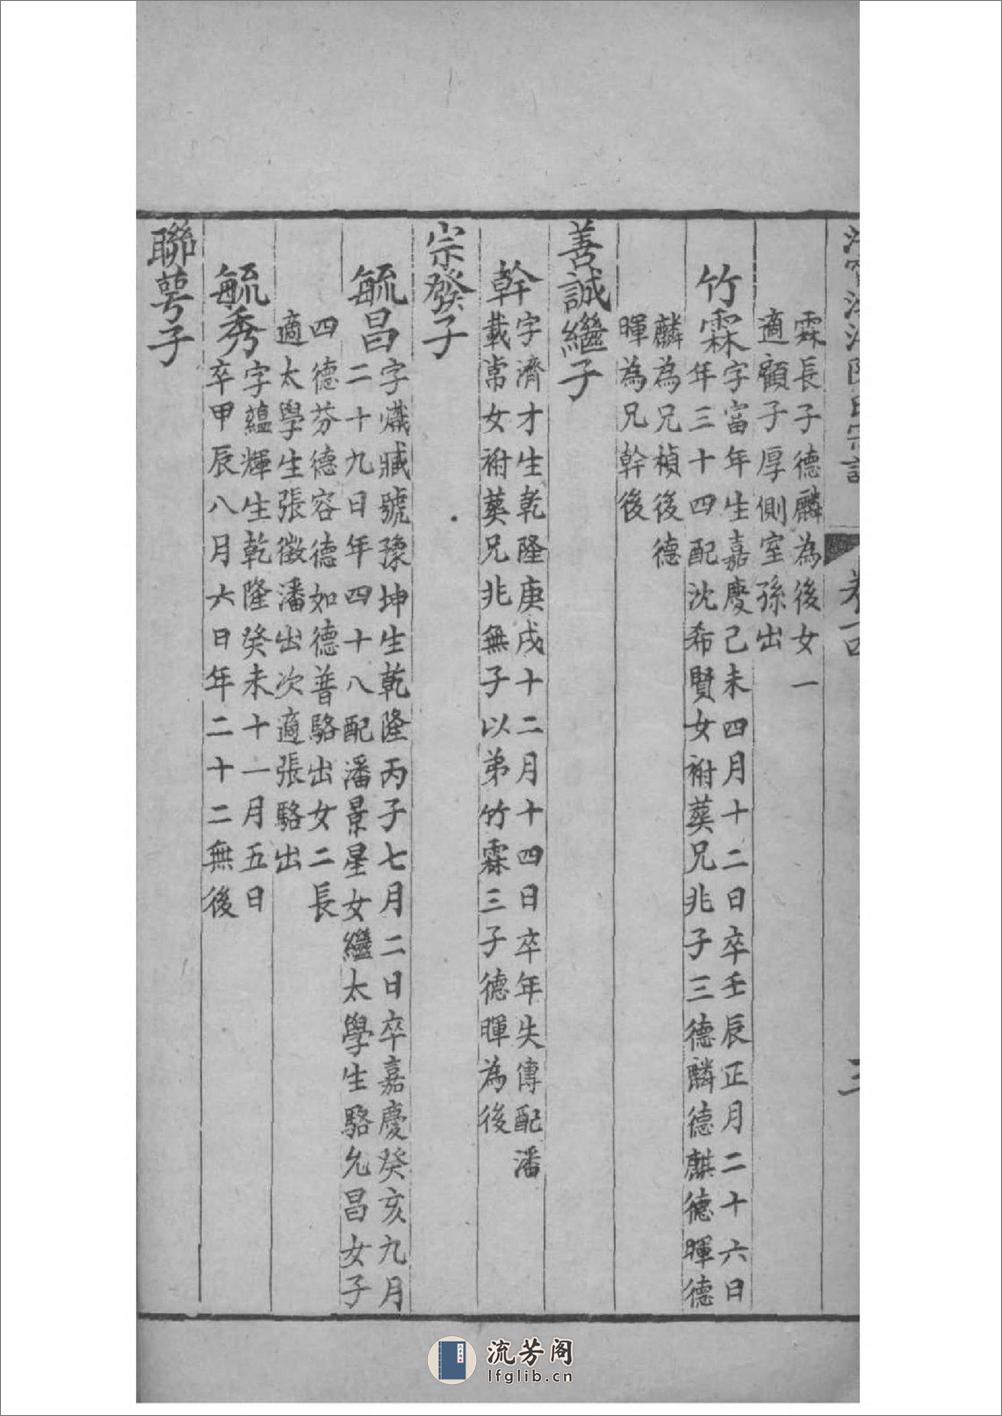 卷一
三
霖長子德麟為後女一
適顧子厚側室孫出
竹霖字富年生嘉慶己未四月十二日卒壬辰正月二十六日
年三十四配沈希賢女祔葬兄兆子三德麟德麒德暉德
麟為兄楨後德
暉為兄幹後
善誠繼子
幹字濟才生乾隆庚戌十二月十四日卒年失傳配潘
載常女祔葬兄兆無子以弟竹霖三子德暉為後
宗發子
毓昌字熾臧號豫坤生乾隆丙子七月二日卒嘉慶癸亥九月
二十九日年四十八配潘景星女繼太學生駱允昌女子
四德芬德容德如德普駱出女二長
適太學生張徵潘出次適張駱出
毓秀字蘊輝生乾隆癸未十一月五日
卒甲辰八月六日年二十二無後
聯萼子
流芳阁
lfglib.cn